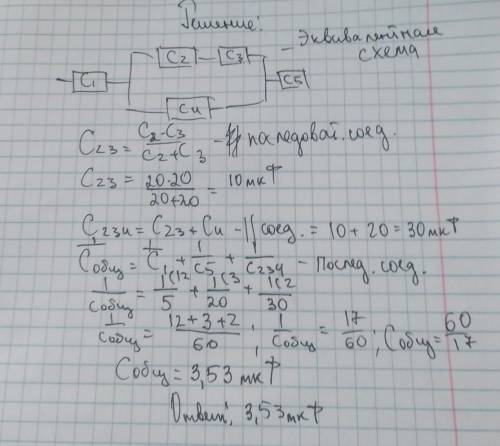 Решение:
– Эквивалентная схема
C1 C2 C3 C4 C5
C23 = C2·C3 / C2+C3 – последоват. соед.
C23 = 20·20 / 20+20 = 10 мкФ
C234 = C23 + C4 – || соед. = 10 + 20 = 30 мкФ
1/Cобщ = 1/C1 + 1/C5 + 1/C234 – Послед. соед.
1/Cобщ = 1(12/5 + 1(3/20 + 1(2/30
1/Cобщ = 12+3+2 / 60 ; 1/Cобщ = 17/60 ; Cобщ = 60/17
Cобщ = 3,53 мкФ
Ответ: 3,53 мкФ